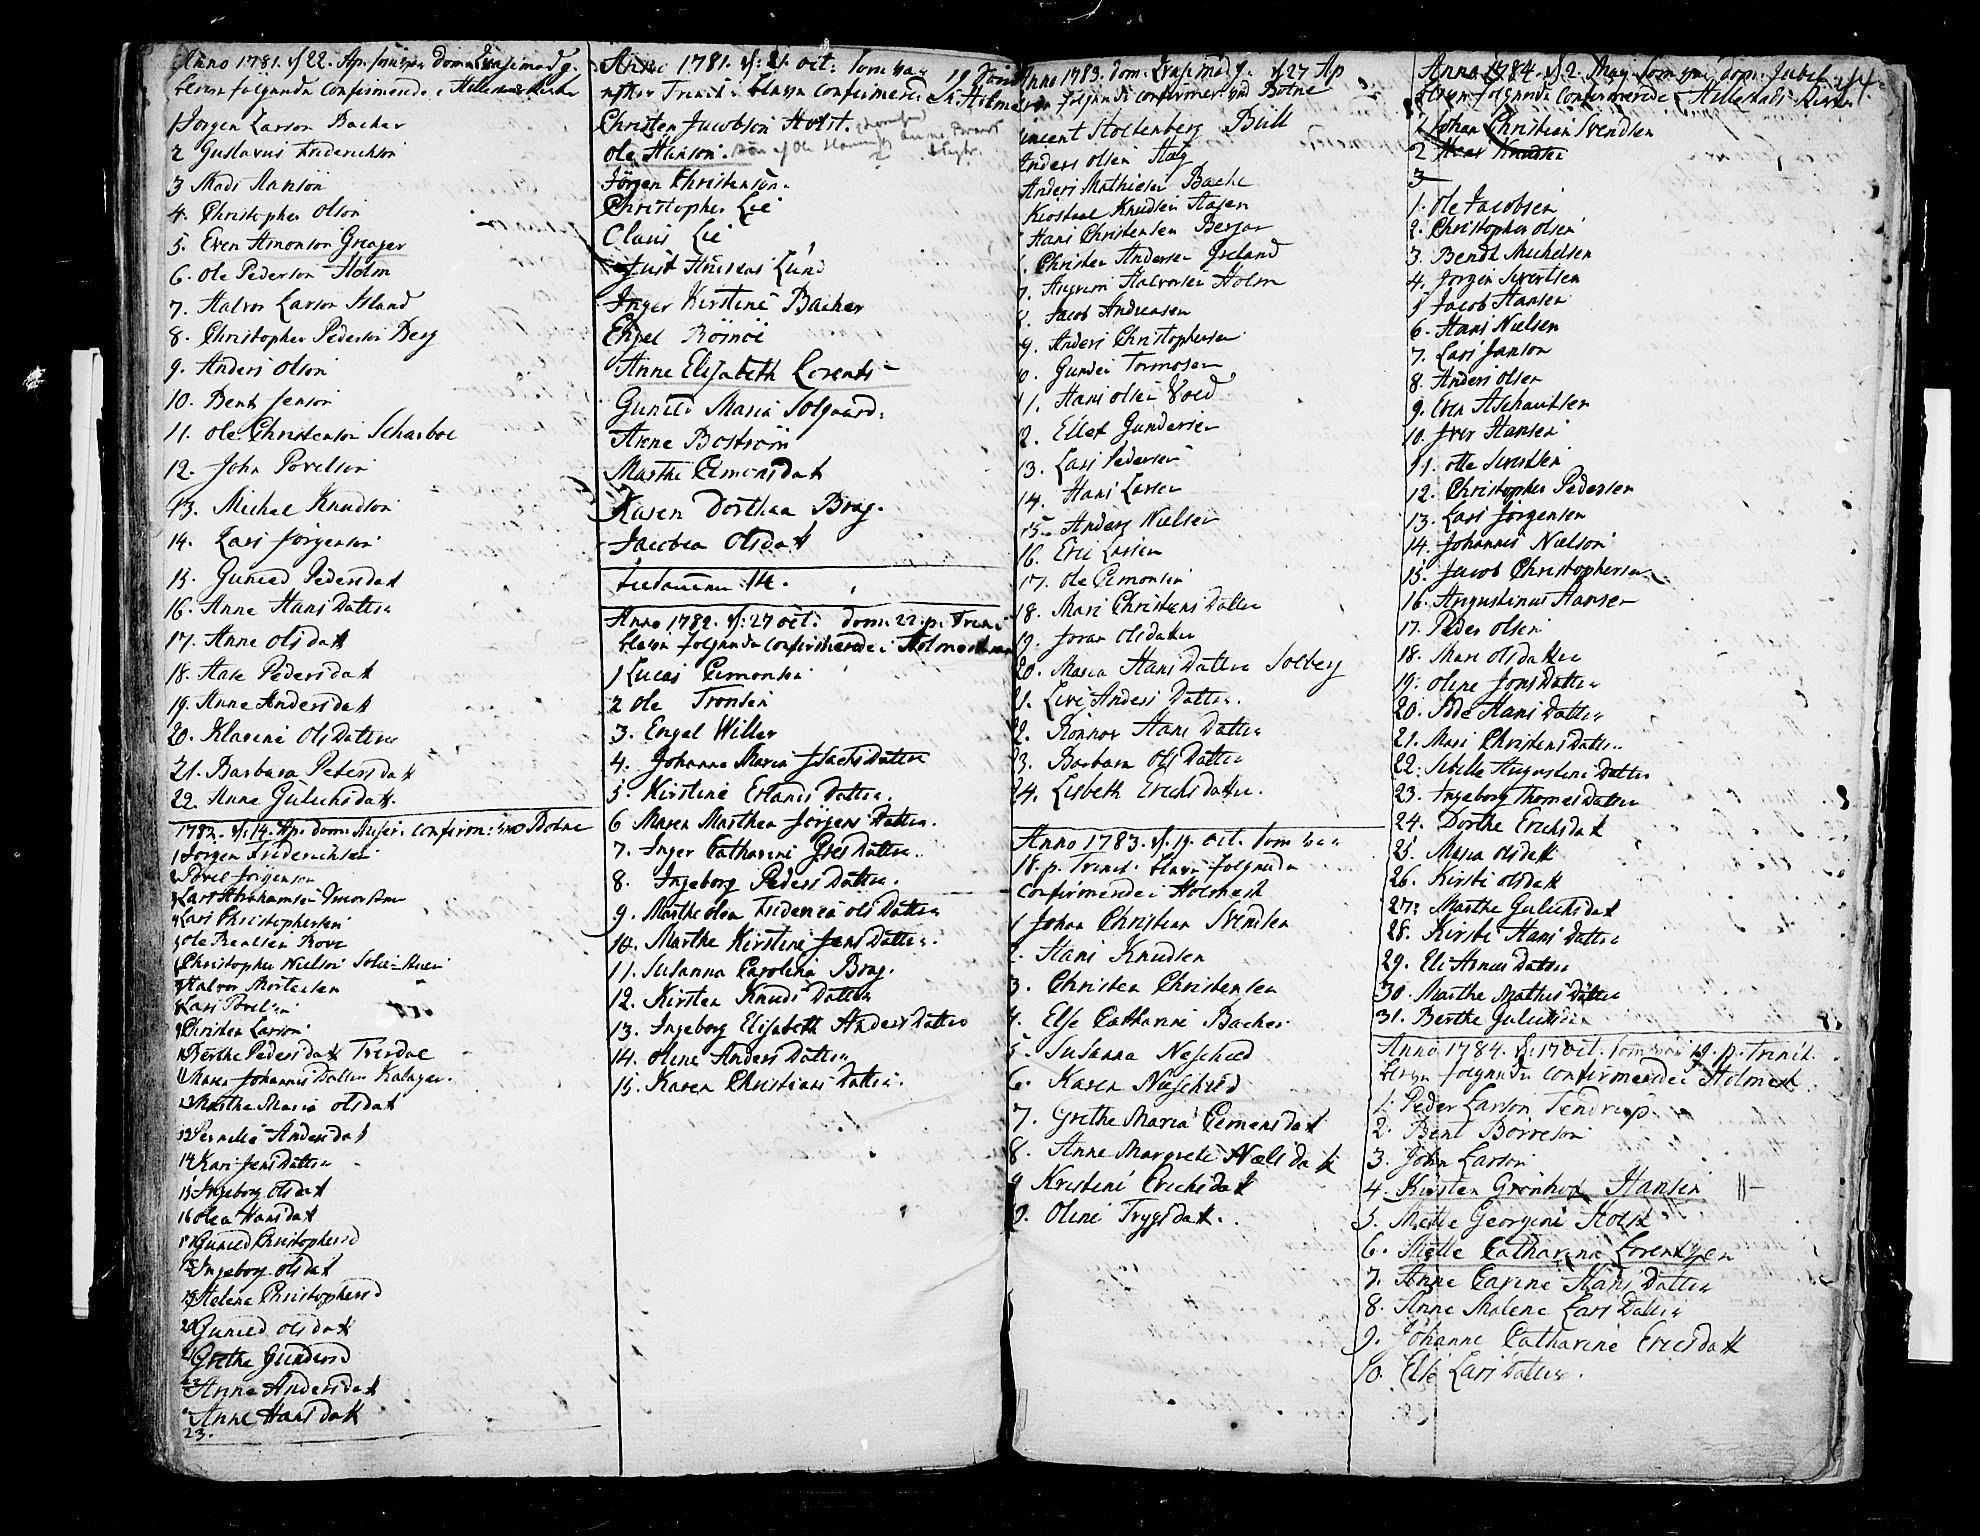 Anno 1781. d. 22. Ap. som var dom. Quasimodg.
bleve følgende Confirmerede i Hillestad Kirke
1 Jørgen Larson Backer
2 Gustavus Friderichson
3 Mads Hanson
4. Christopher Olson
5. Even Amonson Greager
6. Ole Pederson Holm
7. Halvor Larson Island
8. Christopher Pederson Berg
9. Anders Olson
10. Bent Jenson
11. Ole Christenson Scharboe
12. John Povelson
13. Michel Knudson
14. Lars Jørgenson
15. Guneld Pedersdatt
16. Anne Hans Datter
17. Anne Olsdatt
18. Aase Pedersdatt
19. Anne Andersdatt
20. Klarene Ols Datter
21. Barbara Petersdatt
22. Anne Gulichsdatt.
1782. d. 14. Ap. dom. Miser. confirm: ved Botne
1 Jørgen Friderichsen
2 Povel Jørgenson
3 Lars Abrahamsen
4 Lars Christophersen
5 Ole Bentsen Rove
6 Christopher Nielson
7 Halvor Mortensen
8 Lars Povelsen
9 Christen Larson
10 Berthe Pedersdatt Fresdal
11 Maren Johannis Datter Kalager.
12 Marthe Maria Olsdatt
13 Pernelle Andersdatt
14 Kari Jens Datter
15 Ingeborg Olsdatt
16 Olea Hansdatt
17 Guneld Christophersd
18 Ingeborg Olsdatt
19 Helene Christophersd
20 Guneld Olsdatt
21 Grethe Gundersd
22 Anne Andersdatt
Anne Hansdatt
23.
Anno 1781. d: 21. oct: som var 19 Søndag
efter Trinit: bleve Confirmerede i Holmestrand
Christen Jacobson Holst.
Ole Hanson. søn af Ole Anne Brandt
Jørgen Christenson.
Christopher Lie
Claus Lie
Just Andreas Lund
Inger Kirstine Backer
Engel
Anne Elisabeth Lorents
Guneld Maria Solgaard.
Anne Bostrøm
Marthe Cimonsdatt
Karen Dorthea Brag.
Jacobea Olsdatt
tilsammen 14.
Anno 1782. d: 27 oct: dom: 22. p. Trini
bleve følgende confirmerede i Holmestrand
1 Lucas Cimonsen
2 Ole Tronsen
3. Engel Willer
4. Johanne Maria Isachs Datter
5. Kirstine Erlands Datter.
6 Maren Marthea Jørgens Datter.
7. Inger Catharine Gres Datter.
8. Ingeborg Peders Datter.
9. Marthe Olea Fridericia Ols Datter
10. Marthe Kirstine Jens Datter.
11. Susanna Carolina Brag.
12. Kirsten Knuds Datter
13. Ingeborg Elisabeth Anders Datter
14. Olene Anders Datter
15. Karen Christians Datter.
Anno 1783. dom. Quasimodg. d 27 Ap
følgende confirmer: ved Botne
Vincent Stoltenberg Bull
Anders Olsen Haeg
Anders Mathiesen Backe
Knudsen Aasen
Hans Christensen Berger
6. Christen Andersen Greland
7. Halvorsen Holm
8. Jacob Andreasen
9. Anders Christophersen
10. Gunder Tormosen
11. Hans Olsen Vold
12. Ellef Gundersen
13. Lars Pedersen
14. Hans Larsen
15. Anders Nielsen
16. Eric Larsen
17. Ole Cimonsen
18. Mari Christens Datter
19. Joran Olsdatter
20. Maria Hans Datter Solberg
21. Live Anders Datter.
22. Rønnov Hans Datter
23. Barbara Ols Datter
24. Lisbeth Erichsdatter.
Anno 1783. d. 19. oct. som var
18. p. Trinit. bleve følgende
Confirmerede i Holmest
1 Johan Christian Svendsen
2. Hans Knudsen
3. Christen Christensen
4. Else Catharine Backer
5. Susanna Næschied
6. Karen Næschied
7. Grethe Maria Cimonsdatt
8. Anne Margrete Nielsdatt
9 Kristine Erichsdatt
10. Oline Trygsdatt.
Anno 1784. d. 2. May som var dom. Jubil.
bleve følgende Confirmerede i Hillestads Kirke
1 Johan Christian Svendsen
2 Hans Knudsen
3
1. Ole Jacobsen
2. Christopher Olsen
3. Bendt Michelsen
4. Jørgen Sivertsen
5 Jacob Hansen
6. Hans Nielsen
7. Lars Janson
8. Anders Olsen
9. Even
10. Iver Hansen
11. Otte Sivertsen
12. Christopher Pedersen
13. Lars Jørgensen
14. Johannes Nielson
15. Jacob Christophersen
16. Augustinus Hansen
17. Peder Olsen
18. Mari Olsdatter
19. Olene Jons Datter
20. Idde Hans Datter
21. Mari Christens Datter.
22. Sibille Augustins Datter
23. Ingeborg Thomes Datter
24. Dorthe Erichsdatt
25. Maria Olsdatt
26. Kirsti Olsdatt
27. Marthe Gulichsdatt
28. Kirsti Hans Datter
29. Eli Datter
30. Marthe Mathis Datter
31. Berthe Gulichsda
Anno 1784. d. 17 oct. som var 19. p. Trinit.
bleve følgende confirmerede i Holmest.
1. Peder Larson Tendrup.
2. Bent Børreson
3. John Larson
4. Kirsten Grønhof Hansen
5. Mette Georgine Holst
6. Mette Catharina Lorentzen
7. Anne Carine Hans Datter
8. Anne Malene Lars Datter
9. Johanne Catharine Ericsdatt
10. Else Lars Datter.